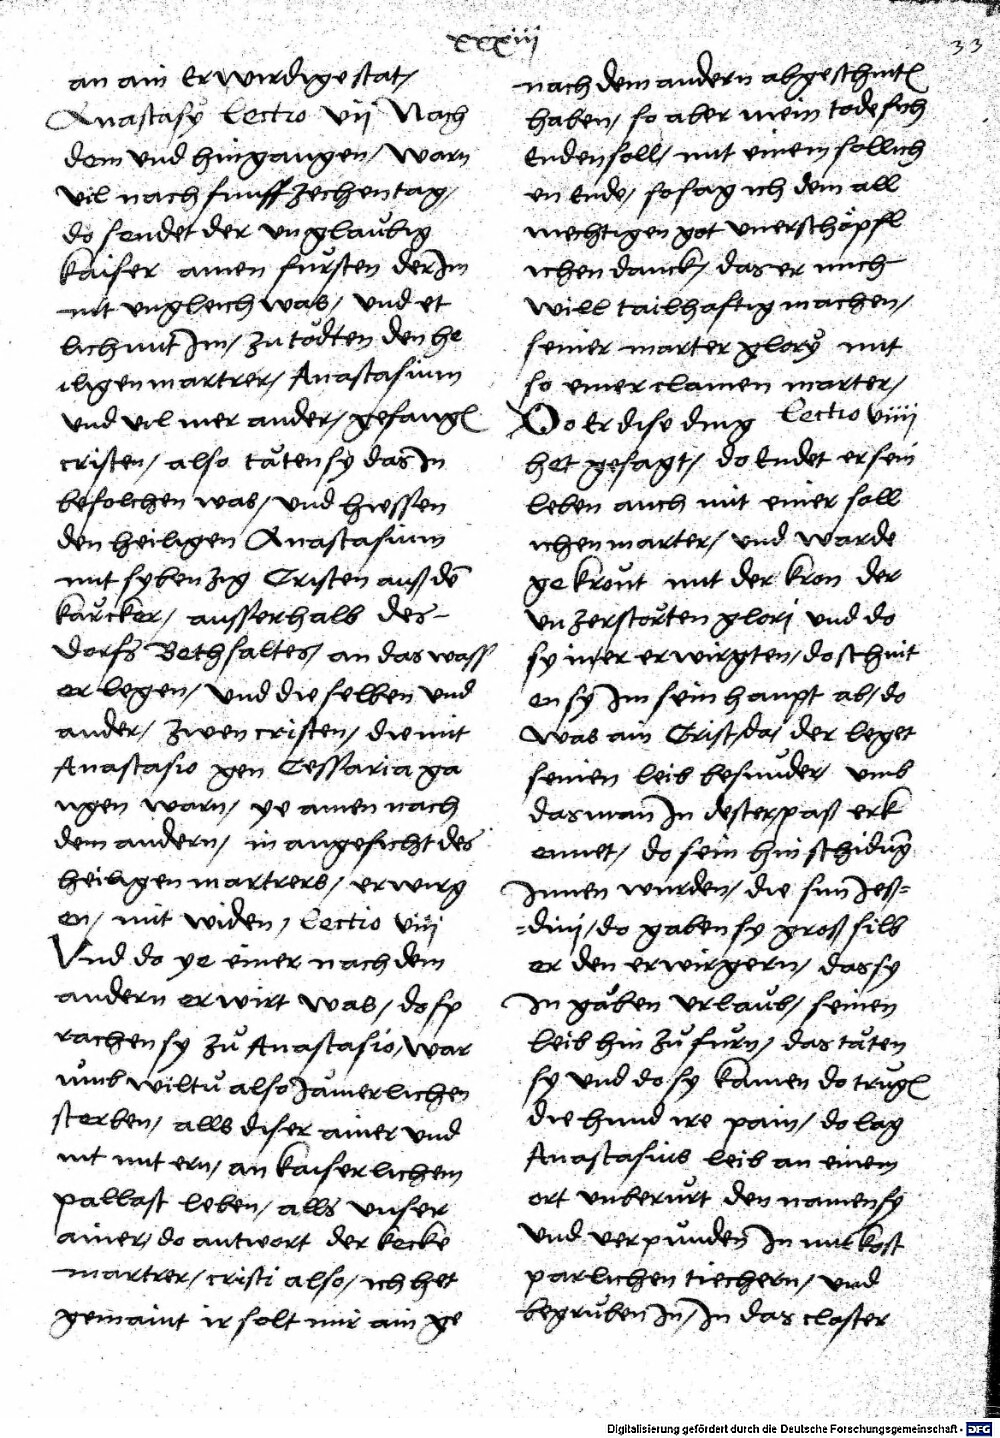 xxxiii
33
an ain Erwirdige stat/
Anastasÿ Lectio vij Nach
dem vnd hingangen/ warn
vil nach funff zechen tag/
do sendet der vnglaubig
kaiser ainen fursten der Im
nit vngleich was/ vnd et
lich mit Im/ zu tödten den he
iligen martrer/ Anastasium
vnd vil mer ander/ gefangẽ
cristen/ also täten sy das In
befolchen was/ vnd hiessen
den heiligen Anastasium
mit sybenzig Cristen auß dẽ
kärcker/ ausserhalb des
dorfs Bethsaltes/ an das wass
er legen/ vnd die selben vnd
ander/ zwen cristen/ die mit
Anastasio gen Cessaria ga
ngen warn/ ye ainen nach
dem andern/ in angesicht des
heiligen martrers/ erwirg
en/ mit widen/ Lectio viij
Vnd do ye einer nach dem
andern erwirt was/ do sp
rachen sy zů Anastasio/ war
vmb wiltu also Jämerlichen
sterben/ alls diser ainer vnd
nit mit ern/ an kaiserlichem
pallast leben/ alls vnser
ainer/ do antwort der kecke
martrer/ cristi also/ ich het
gemaint ir solt mir ain ge
nach dem andern abgeschnitẽ
haben/ so aber mein tode sich
Enden soll/ mit einem sollich
en Ende/ so sag ich dem all
mechtigen got vnerschöpfl
ichen danck/ das er mich
will tailhaftig machen/
seiner marter glory mit
so einer clainen marter/
Do Er dise ding Lectio viiij
het gesagt/ do Endet er sein
leben auch mit einer soll
ichen marter/ vnd warde
gekrönt mit der kron der
vnzerstörten glori vnd do
sy in/er erwirgten/ do schnit
en sy Im sein haupt ab/ do
was ain Crist/ da/ der leget
seinen leib besunder/ vmb
das man In dester paß erk
ennet/ do sein hinschidung
Innen wurden/ die sun Jeß=
=dini/ do gaben sy groß silb
er den erwirgern/ das sy
In gäben vrlaub/ seinen
leib hin zů furn/ das täten
sy vnd do sy kamen do trugẽ
die hund ire pain/ do lag
Anastasius leib an einem
ort vnberürt den namen sy
vnd verpunden In mit kost
parlichen tiechern/ vnd
begruben In/ In das closter
Digitalisierung gefördert durch die Deutsche Forschungsgemeinschaft - DFG